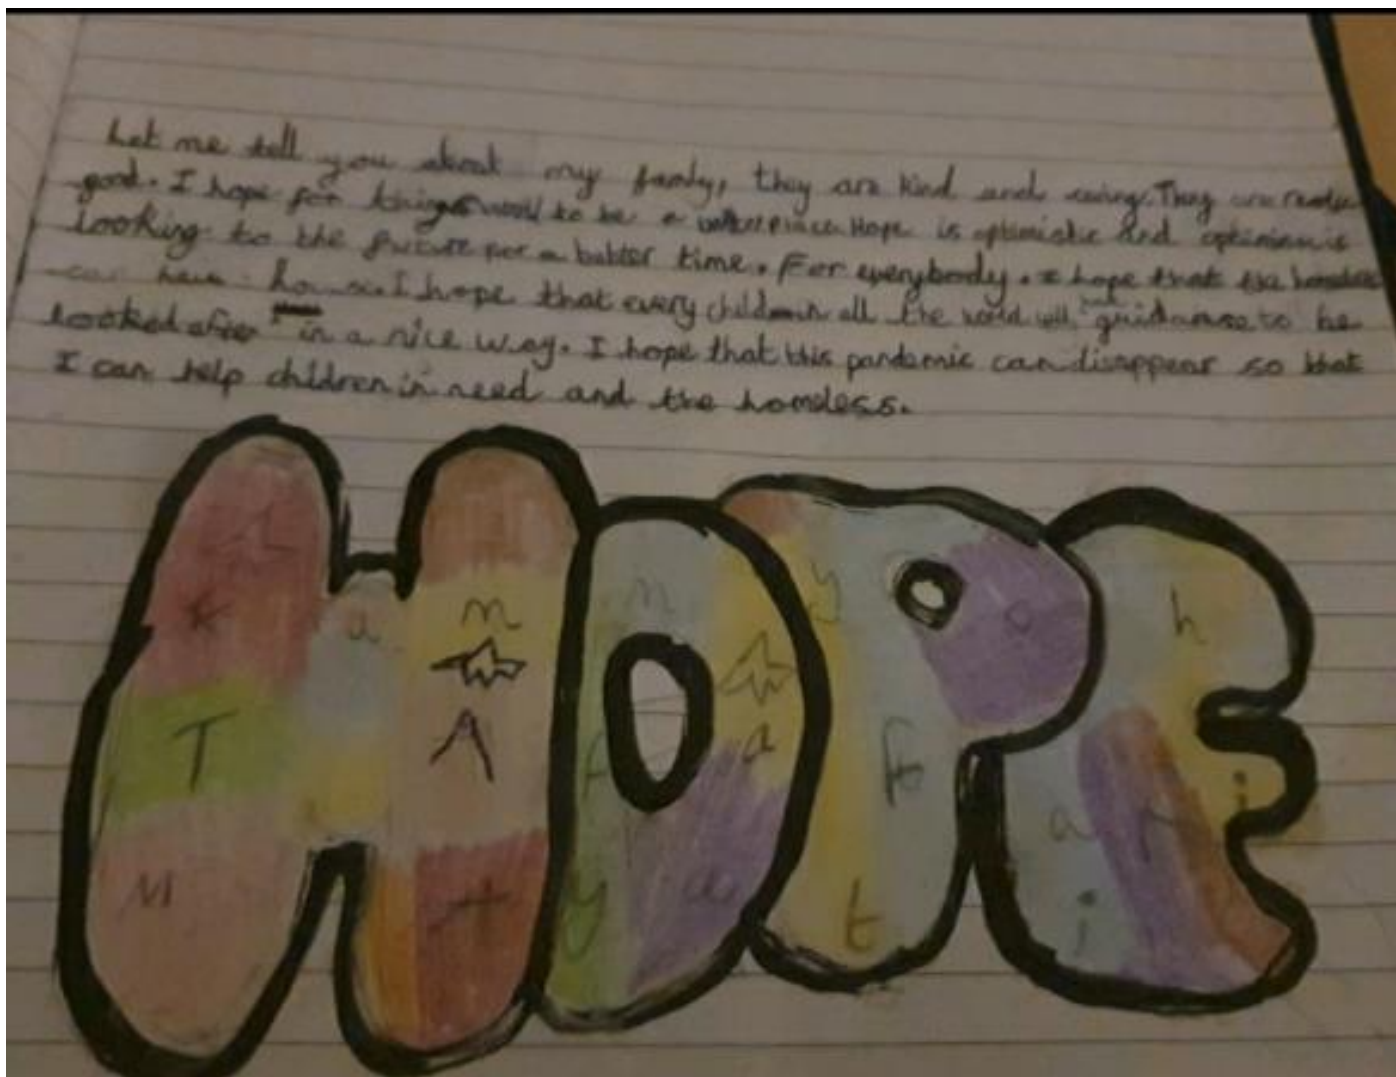 Let me tell you about my family, they are kind and caring. They are really
good. I hope for things to be a better place Hope is optimistic and optimism is
Looking to the future for a better time. For everybody. I hope that the homeless
can have I hope that every child in all the world will guidance to be
looked after in a nice way. I hope that this pandemic can disappear so that
I can help children in need and the homeless.
HOPE